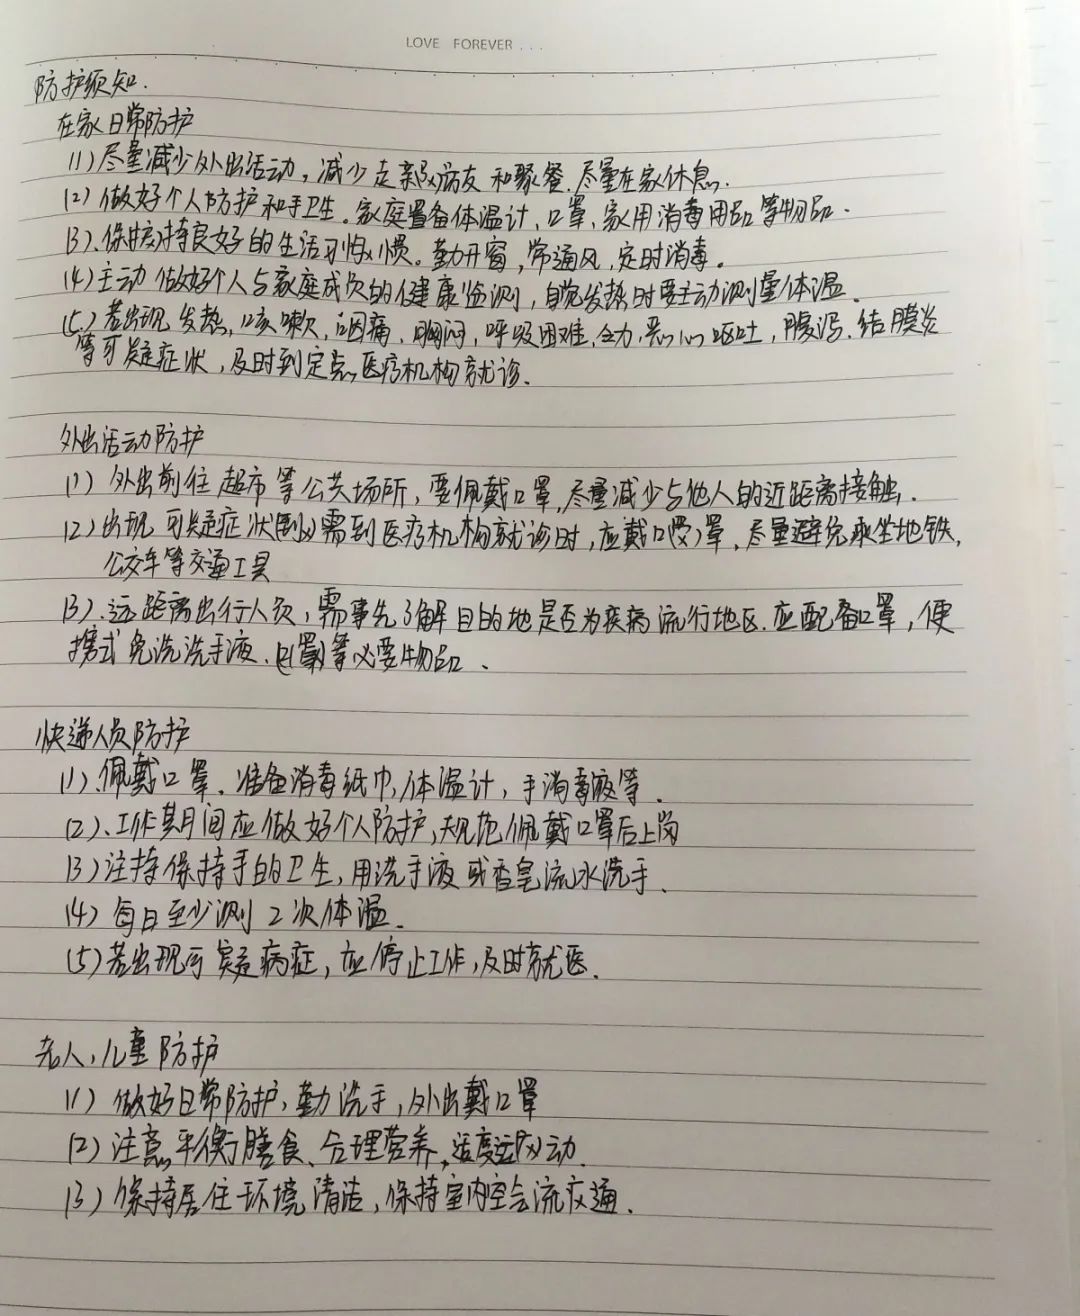 LOVE FOREVER ...
防护须知.
在家日常防护
(1) 尽量减少外出活动，减少走亲访友和聚餐.尽量在家休息.
(2) 做好个人防护和手卫生.家庭置备体温计,口罩、家用消毒用品等物品.
(3).保持良好的生活习惯。勤开窗,常通风,定时消毒。
(4) 主动做好个人与家庭成员的健康监测,自觉发热时要主动测量体温.
(5.) 若出现发热,咳嗽、咽痛.胸闷,呼吸困难,乏力,恶心呕吐,腹泻.结膜炎
等可疑症状,及时到定点医疗机构就诊.
外出活动防护
(1) 外出前往超市等公共场所,要佩戴口罩,尽量减少与他人的近距离接触.
(2) 出现可疑症状需到医疗机构就诊时,应戴口罩,尽量避免乘坐地铁,
公交车等交通工具
(3).远距离出行人员,需事先了解目的地是否为疾病流行地区.应配备口罩,便
携式免洗洗手液.等必要物品.
快递人员防护
(1).佩戴口罩.准备消毒纸巾,体温计,手消毒液等.
(2).工作期间应做好个人防护,规范佩戴口罩后上岗
(3) 注持保持手的卫生,用洗手液或香皂流水洗手、
(4) 每日至少测2次体温.
(5) 若出现可疑病症,应停止工作,及时就医.
老人,儿童防护
(1) 做好日常防护,勤洗手,外出戴口罩
(2) 注意平衡膳食、合理营养,适度运动.
(3) 保持居住环境清洁,保持室内空气流通.